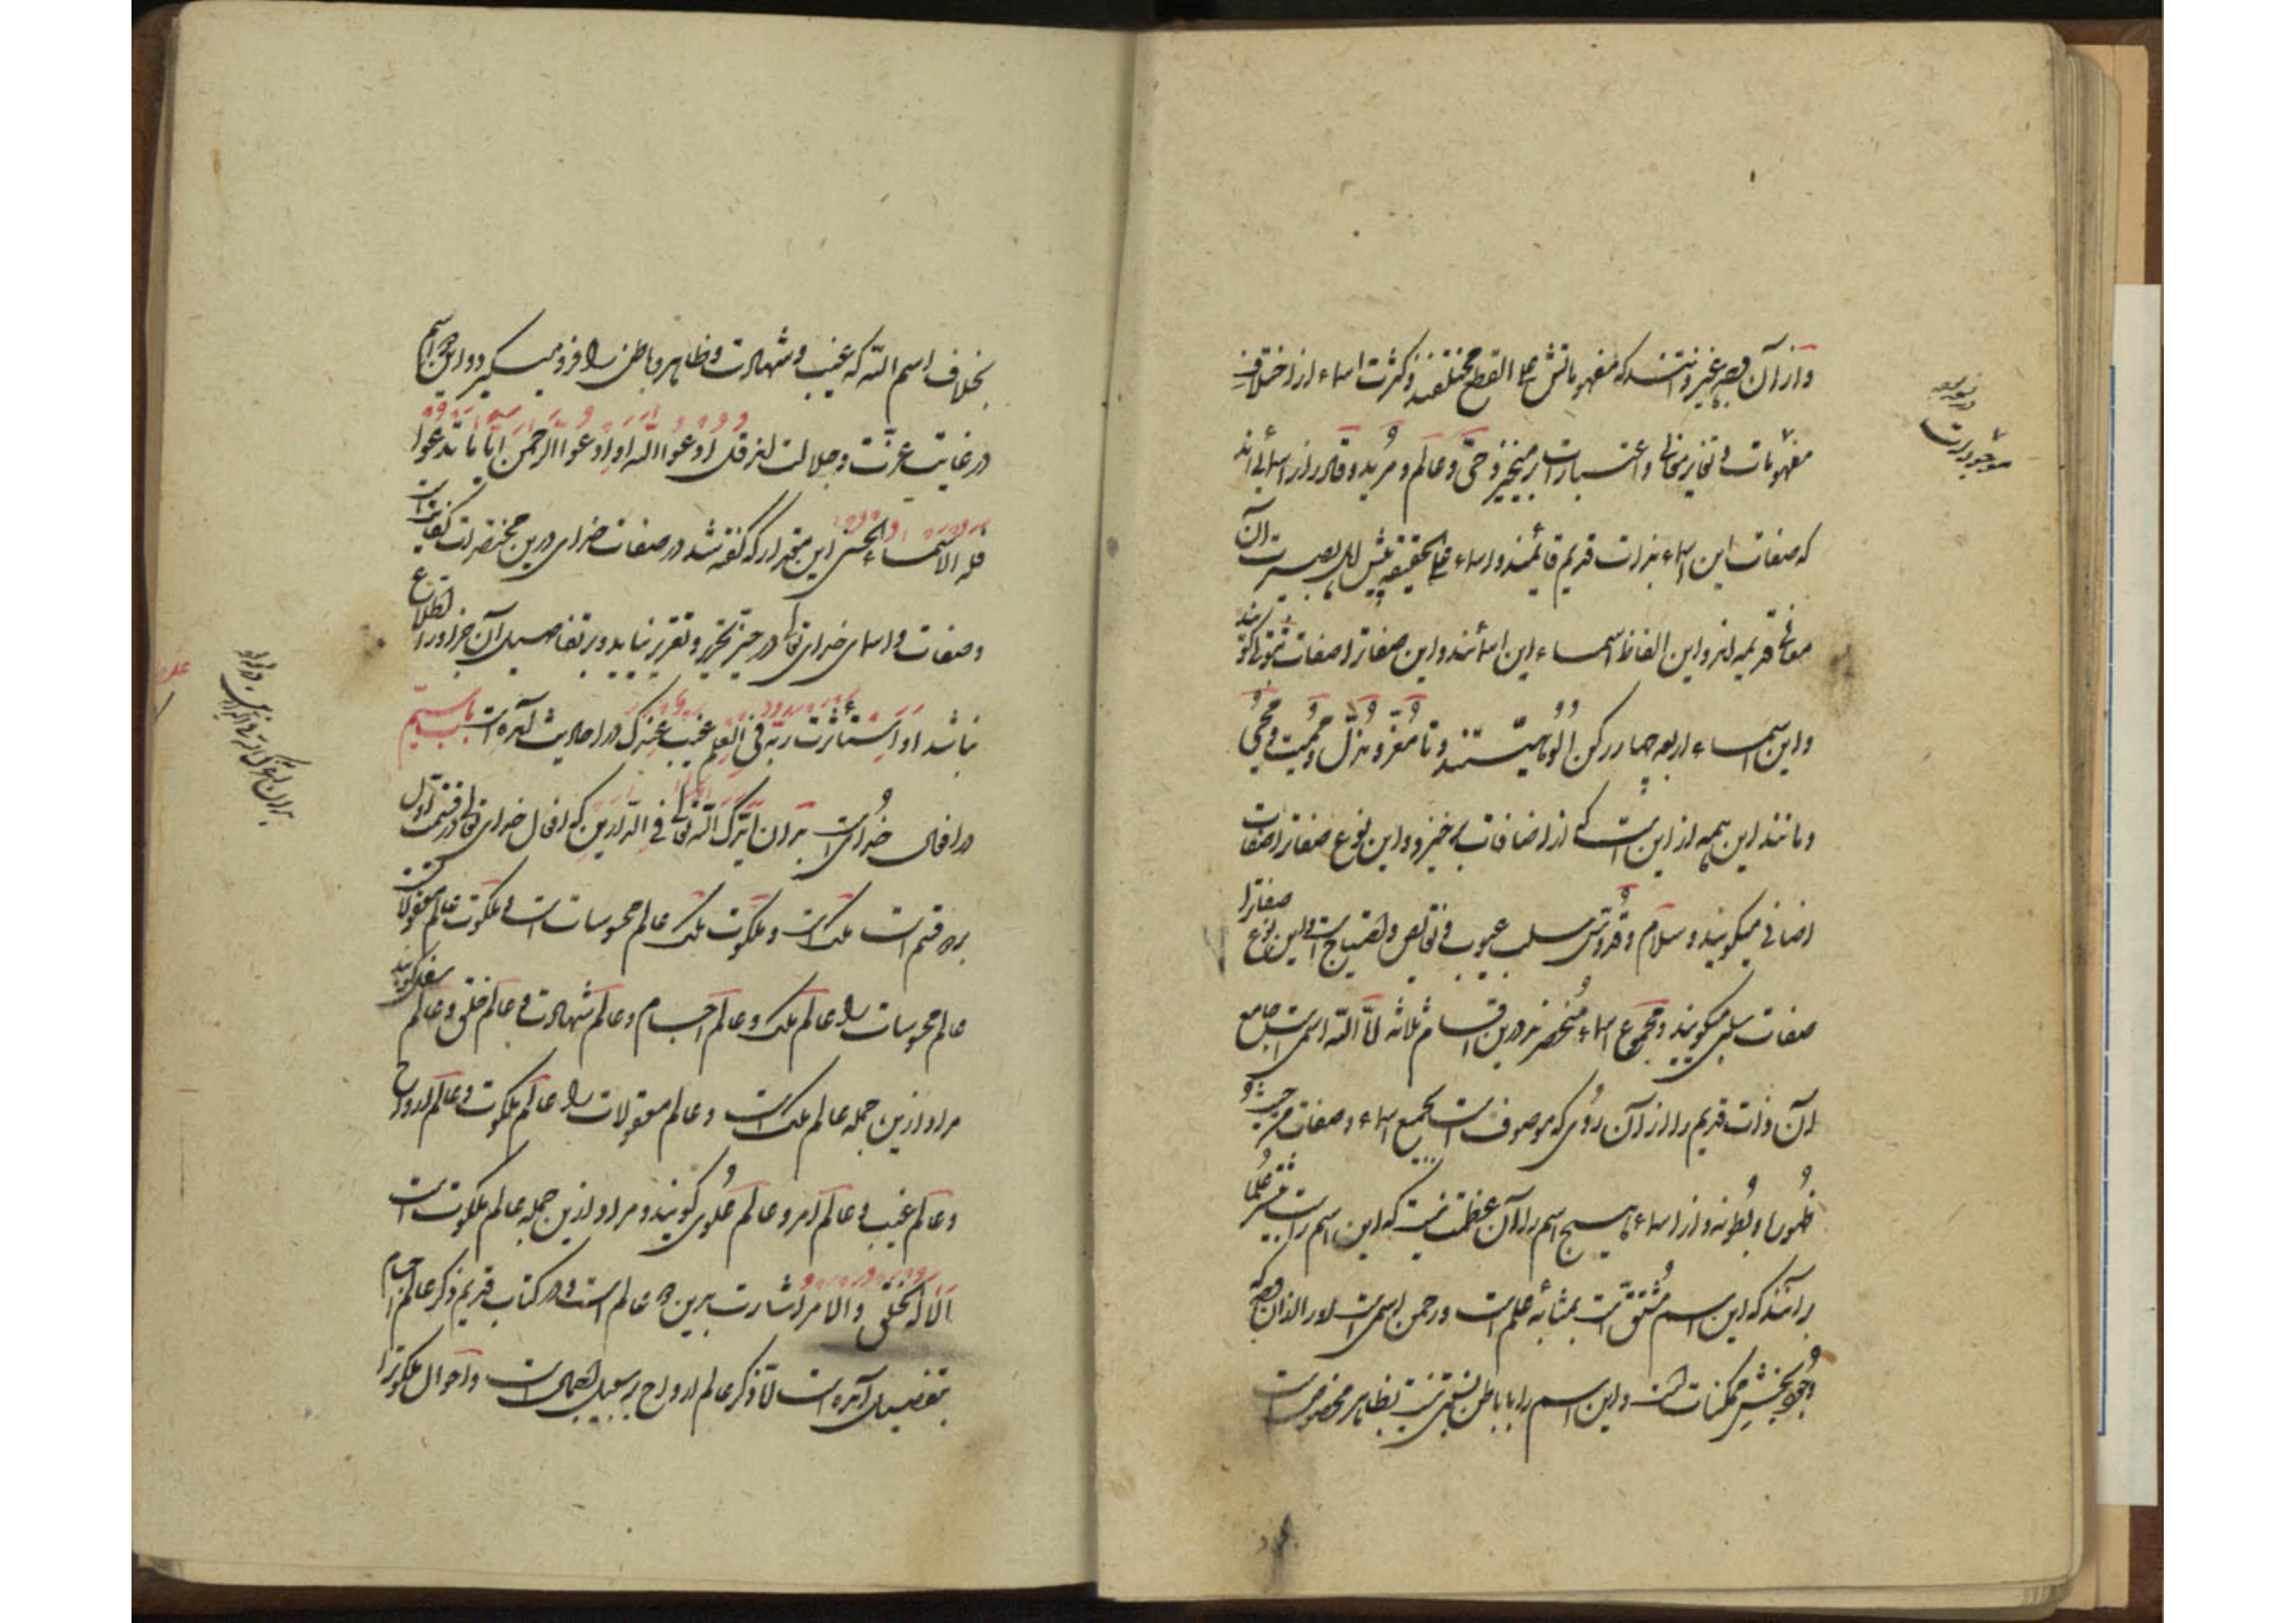 و از آن وجه غیر ذاتند که مفهوماتش علی القطع مختلفند و کثرت اسماء از اختلاف
مفهومات و تغایر معانی و اعتبارات برمیخیزد حی و عالم و مرید و قادر از اسمائی‌اند
که صفات این اسماء بذات قدیم قائمند و اسماء علی الحقیقه پیش اهل بصیرت آن
معانی قدیمه‌اند و این الفاظ اسماء این اسمائند و این صفات را صفات ثبوتی گویند
و این اسماء اربعه چهار رکن الوهیتند و تا معز و مذل و ممیت و محیی
و مانند این همه از این است که از اضافات می خیزد و این نوع صفات را صفات
اضافی میگویند و سلام و قدوس سلب عیوب و نقایص و احتیاج است و این نوع صفات را
صفات سلبی میگویند و مجموع اسماء منحصرند درین اقسام ثلاثه اما الله اسمی است جامع
آن ذات قدیم را از آن روی که موصوف است بجمیع اسماء و صفات من حیث
ظهورها و بطونها و از اسماء هیچ اسم را آن عظمت نیست که این اسم راست بیشتر علما
برآنند که این اسم مشتق نیست بمثابه علم است و رحمن اسمی است او را از آن وجه که
وجود بخش ممکنات است و این اسم را با باطن نسبتی نیست بظاهر مخصوص است
موجود است
بخلاف اسم الله که غیب و شهادت و ظاهر و باطن را فرو میگیرد و این هر دو اسم
در غایت عزت و جلالت اند قل ادعوا الله او ادعوا الرحمن ایا ما تدعوا
فله الاسماء الحسنی این مقدار که گفته شد در صفات خدای درین مختصر کفایت است
و صفات و اسمای خدای تعالی در حیز تحریر و تقریر نیاید و بر تفاصیل آن جز او را اطلاع
نباشد او استأثرت به فی العلم غیب عندک در احادیث آمده است باب سیم
در افعال خدای است بدان ایدک الله تعالی فی الدارین که افعال خدای تعالی در قسمت اول
بدو قسم است ملک است و ملکوت ملک عالم محسوسات است و ملکوت عالم معقولات
عالم محسوسات را عالم ملک و عالم اجسام و عالم شهادت و عالم خلق و عالم سفلی گویند
مراد ازین جمله عالم ملک است و عالم معقولات را عالم ملکوت و عالم ارواح
و عالم غیب و عالم امر و عالم علوی گویند و مراد ازین جمله عالم ملکوت است
الا له الخلق و الامر اشارت برین دو عالم است و در کتاب قدیم ذکر عالم اجسام
بتفصیل آمده است اما ذکر عالم ارواح بر سبیل اجمال است و احوال ملکوت را